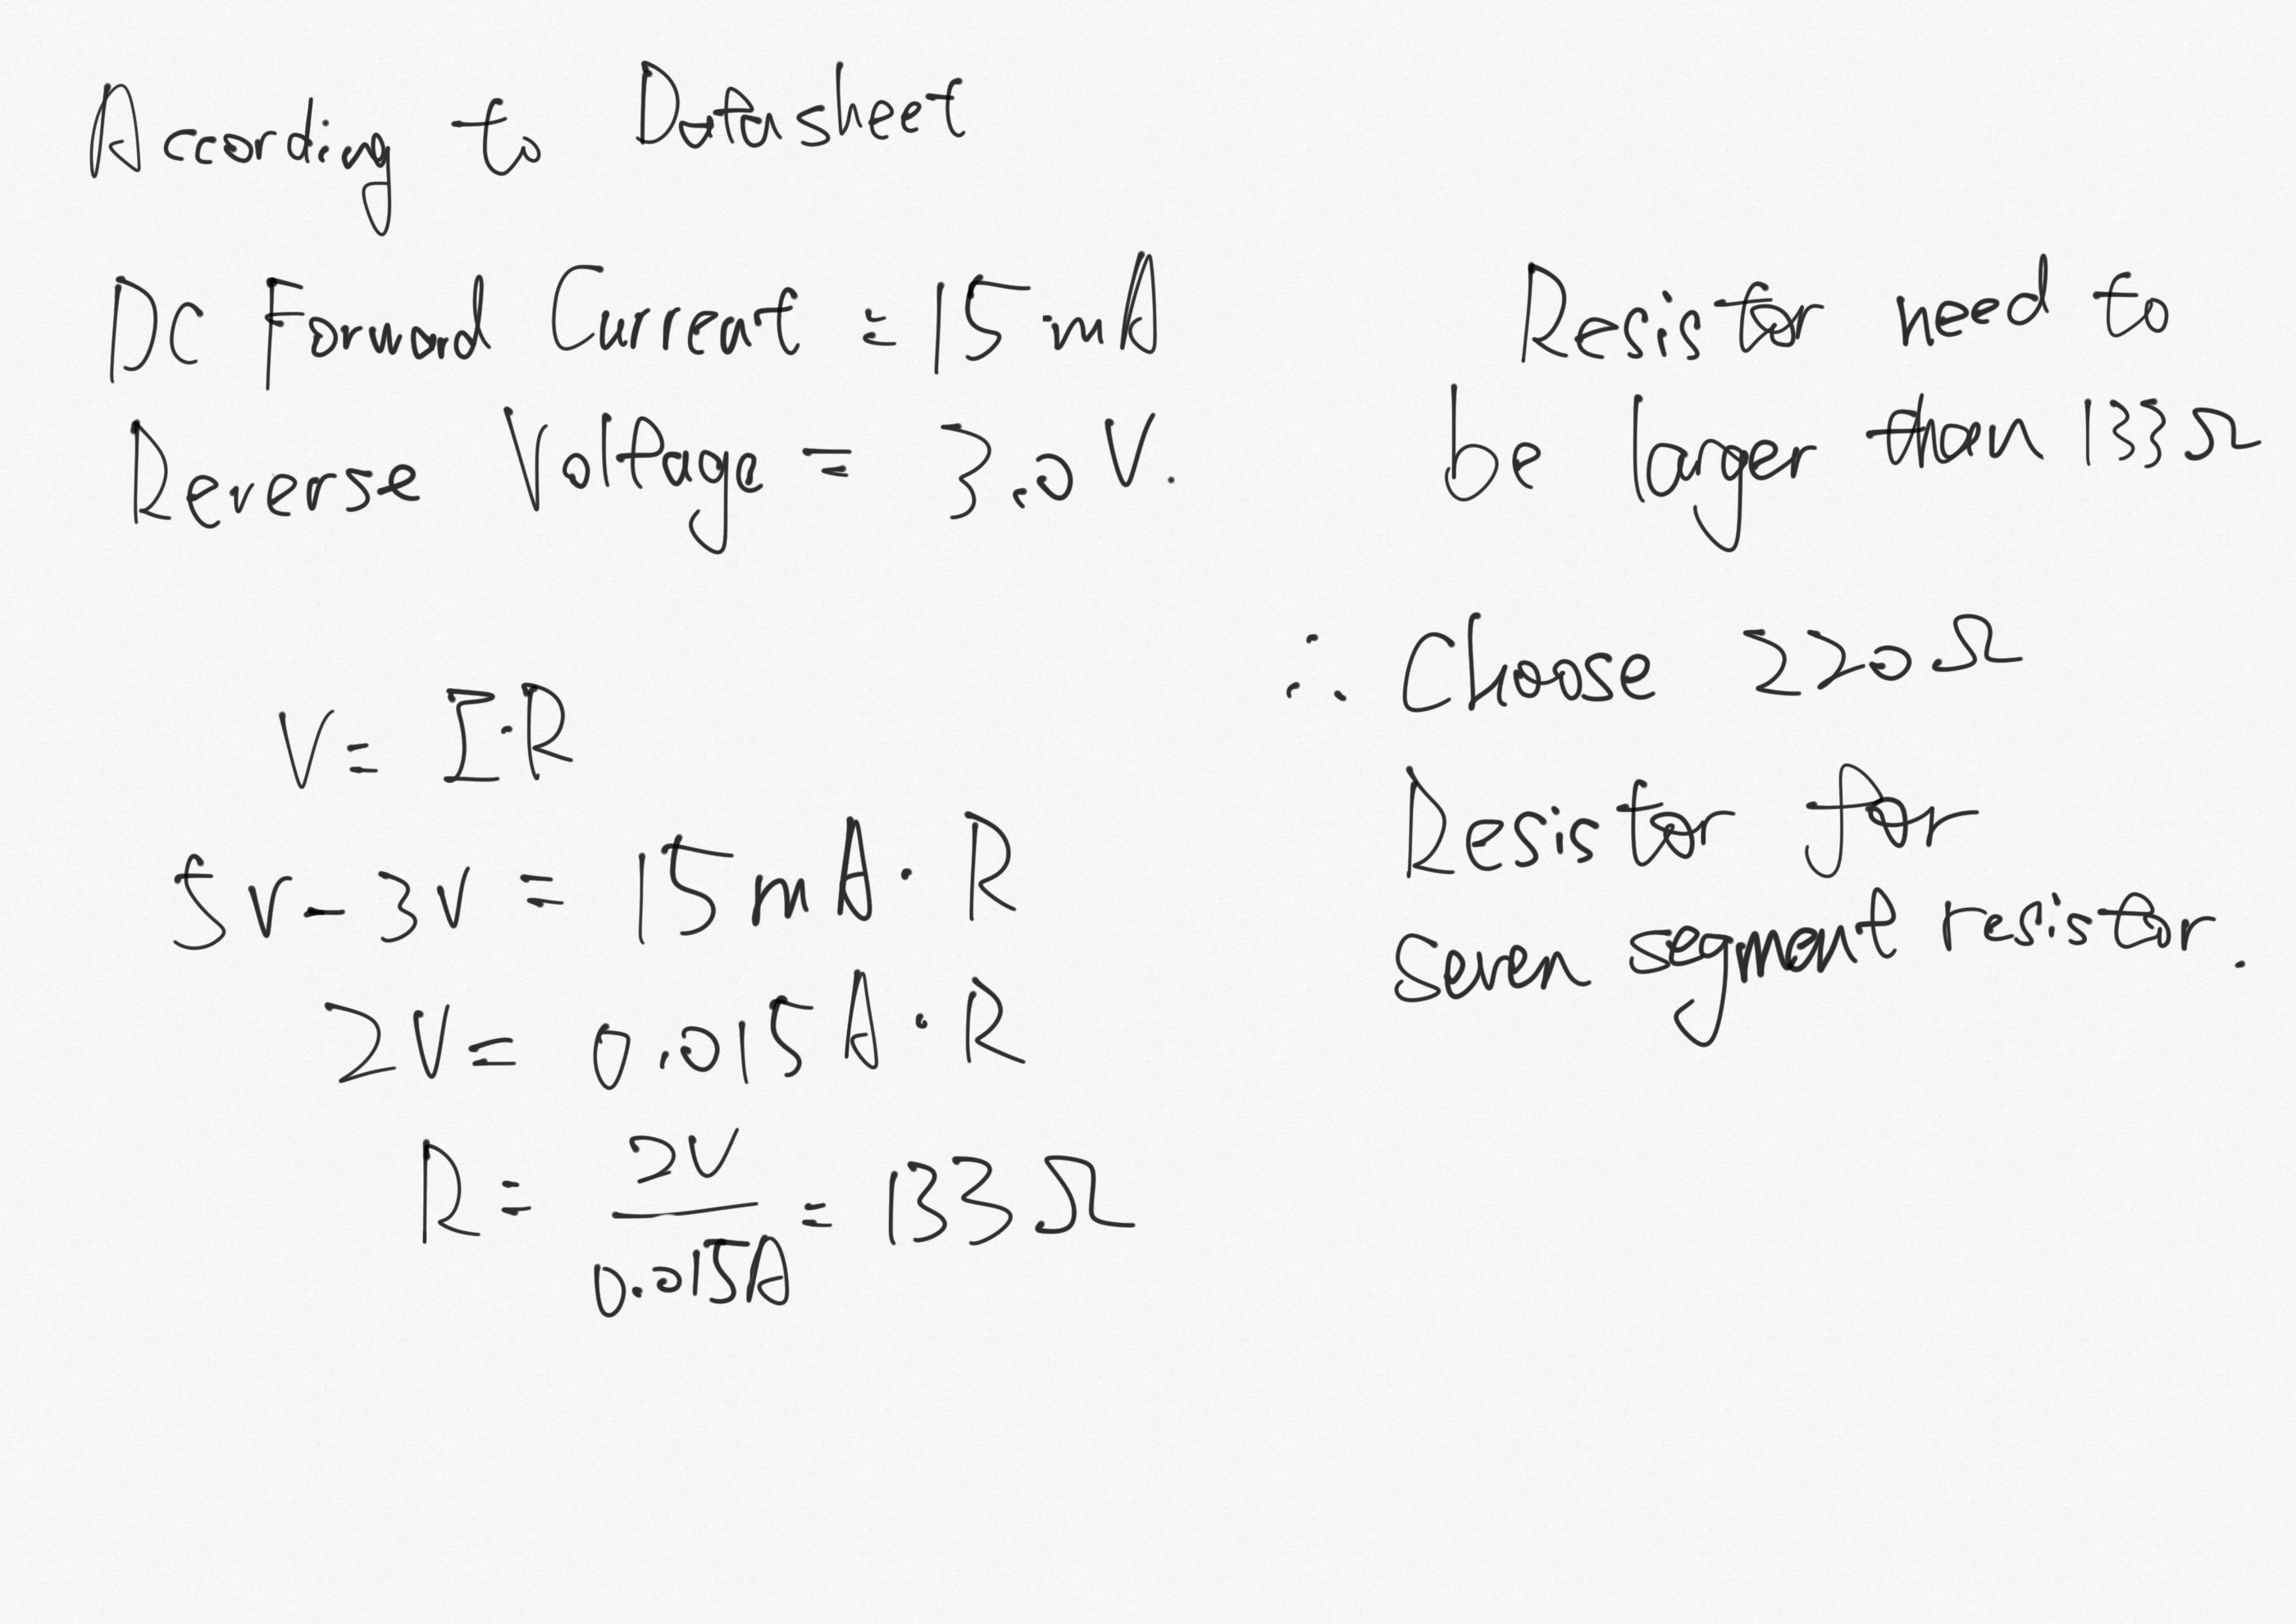 According to Datasheet
DC Forward Current = 15 mA
Reverse Voltage = 3.0 V.
V = I·R
5V - 3V = 15 mA · R
2V = 0.015 A · R
R = 2V / 0.015A = 133 Ω
Resistor need to
be larger than 133 Ω
∴ Choose 220 Ω
Resistor for
seven segment resistor.